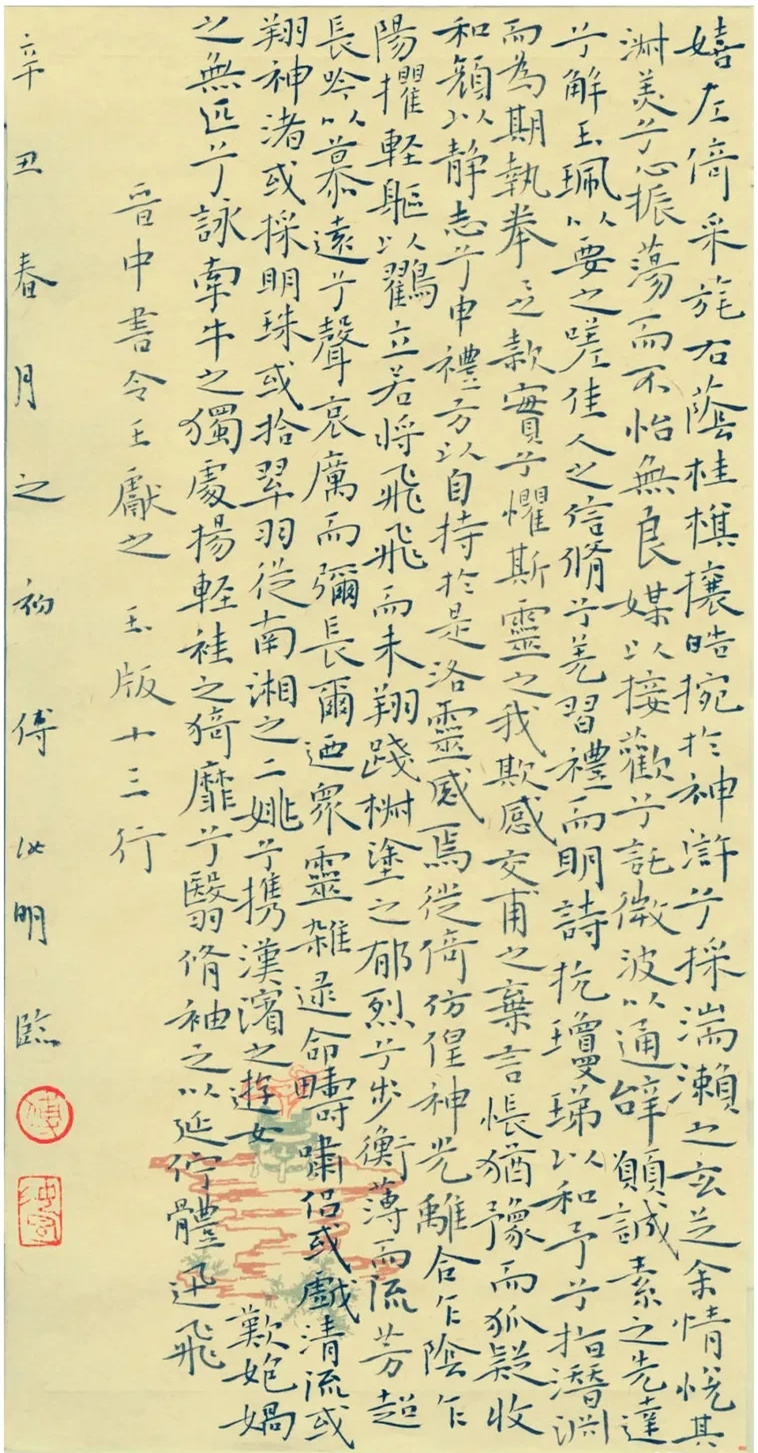 嬉左倚采旄右蔭桂旗攘皓捥於神滸兮採湍瀨之玄芝余情悅其
淑美兮心振蕩而不怡無良媒以接歡兮託微波以通辭願誠素之先達
兮解玉珮以要之嗟佳人之信脩兮羌習禮而明詩抗瓊珶以和予兮指潛淵
而為期執拳之款實兮懼斯靈之我欺感交甫之棄言悵猶豫而狐疑收
和顏以静志兮申禮方以自持於是洛靈感焉徙倚仿偟神光離合乍陰乍
陽擢輕軀以鶴立若將飛飛而未翔踐椒塗之郁烈兮步衡薄而流芳超
長吟以慕遠兮聲哀厲而彌長爾迺眾靈雜遝命疇嘯侶或戲清流或
翔神渚或採明珠或拾翠羽從南湘之二姚兮携漢濱之遊女歎匏媧
之無匹兮詠牽牛之獨處揚輕袿之猗靡兮翳脩袖之以延佇體迅飛
晉中書令王獻之 玉版十三行
辛丑春月之初傅明臨
傅